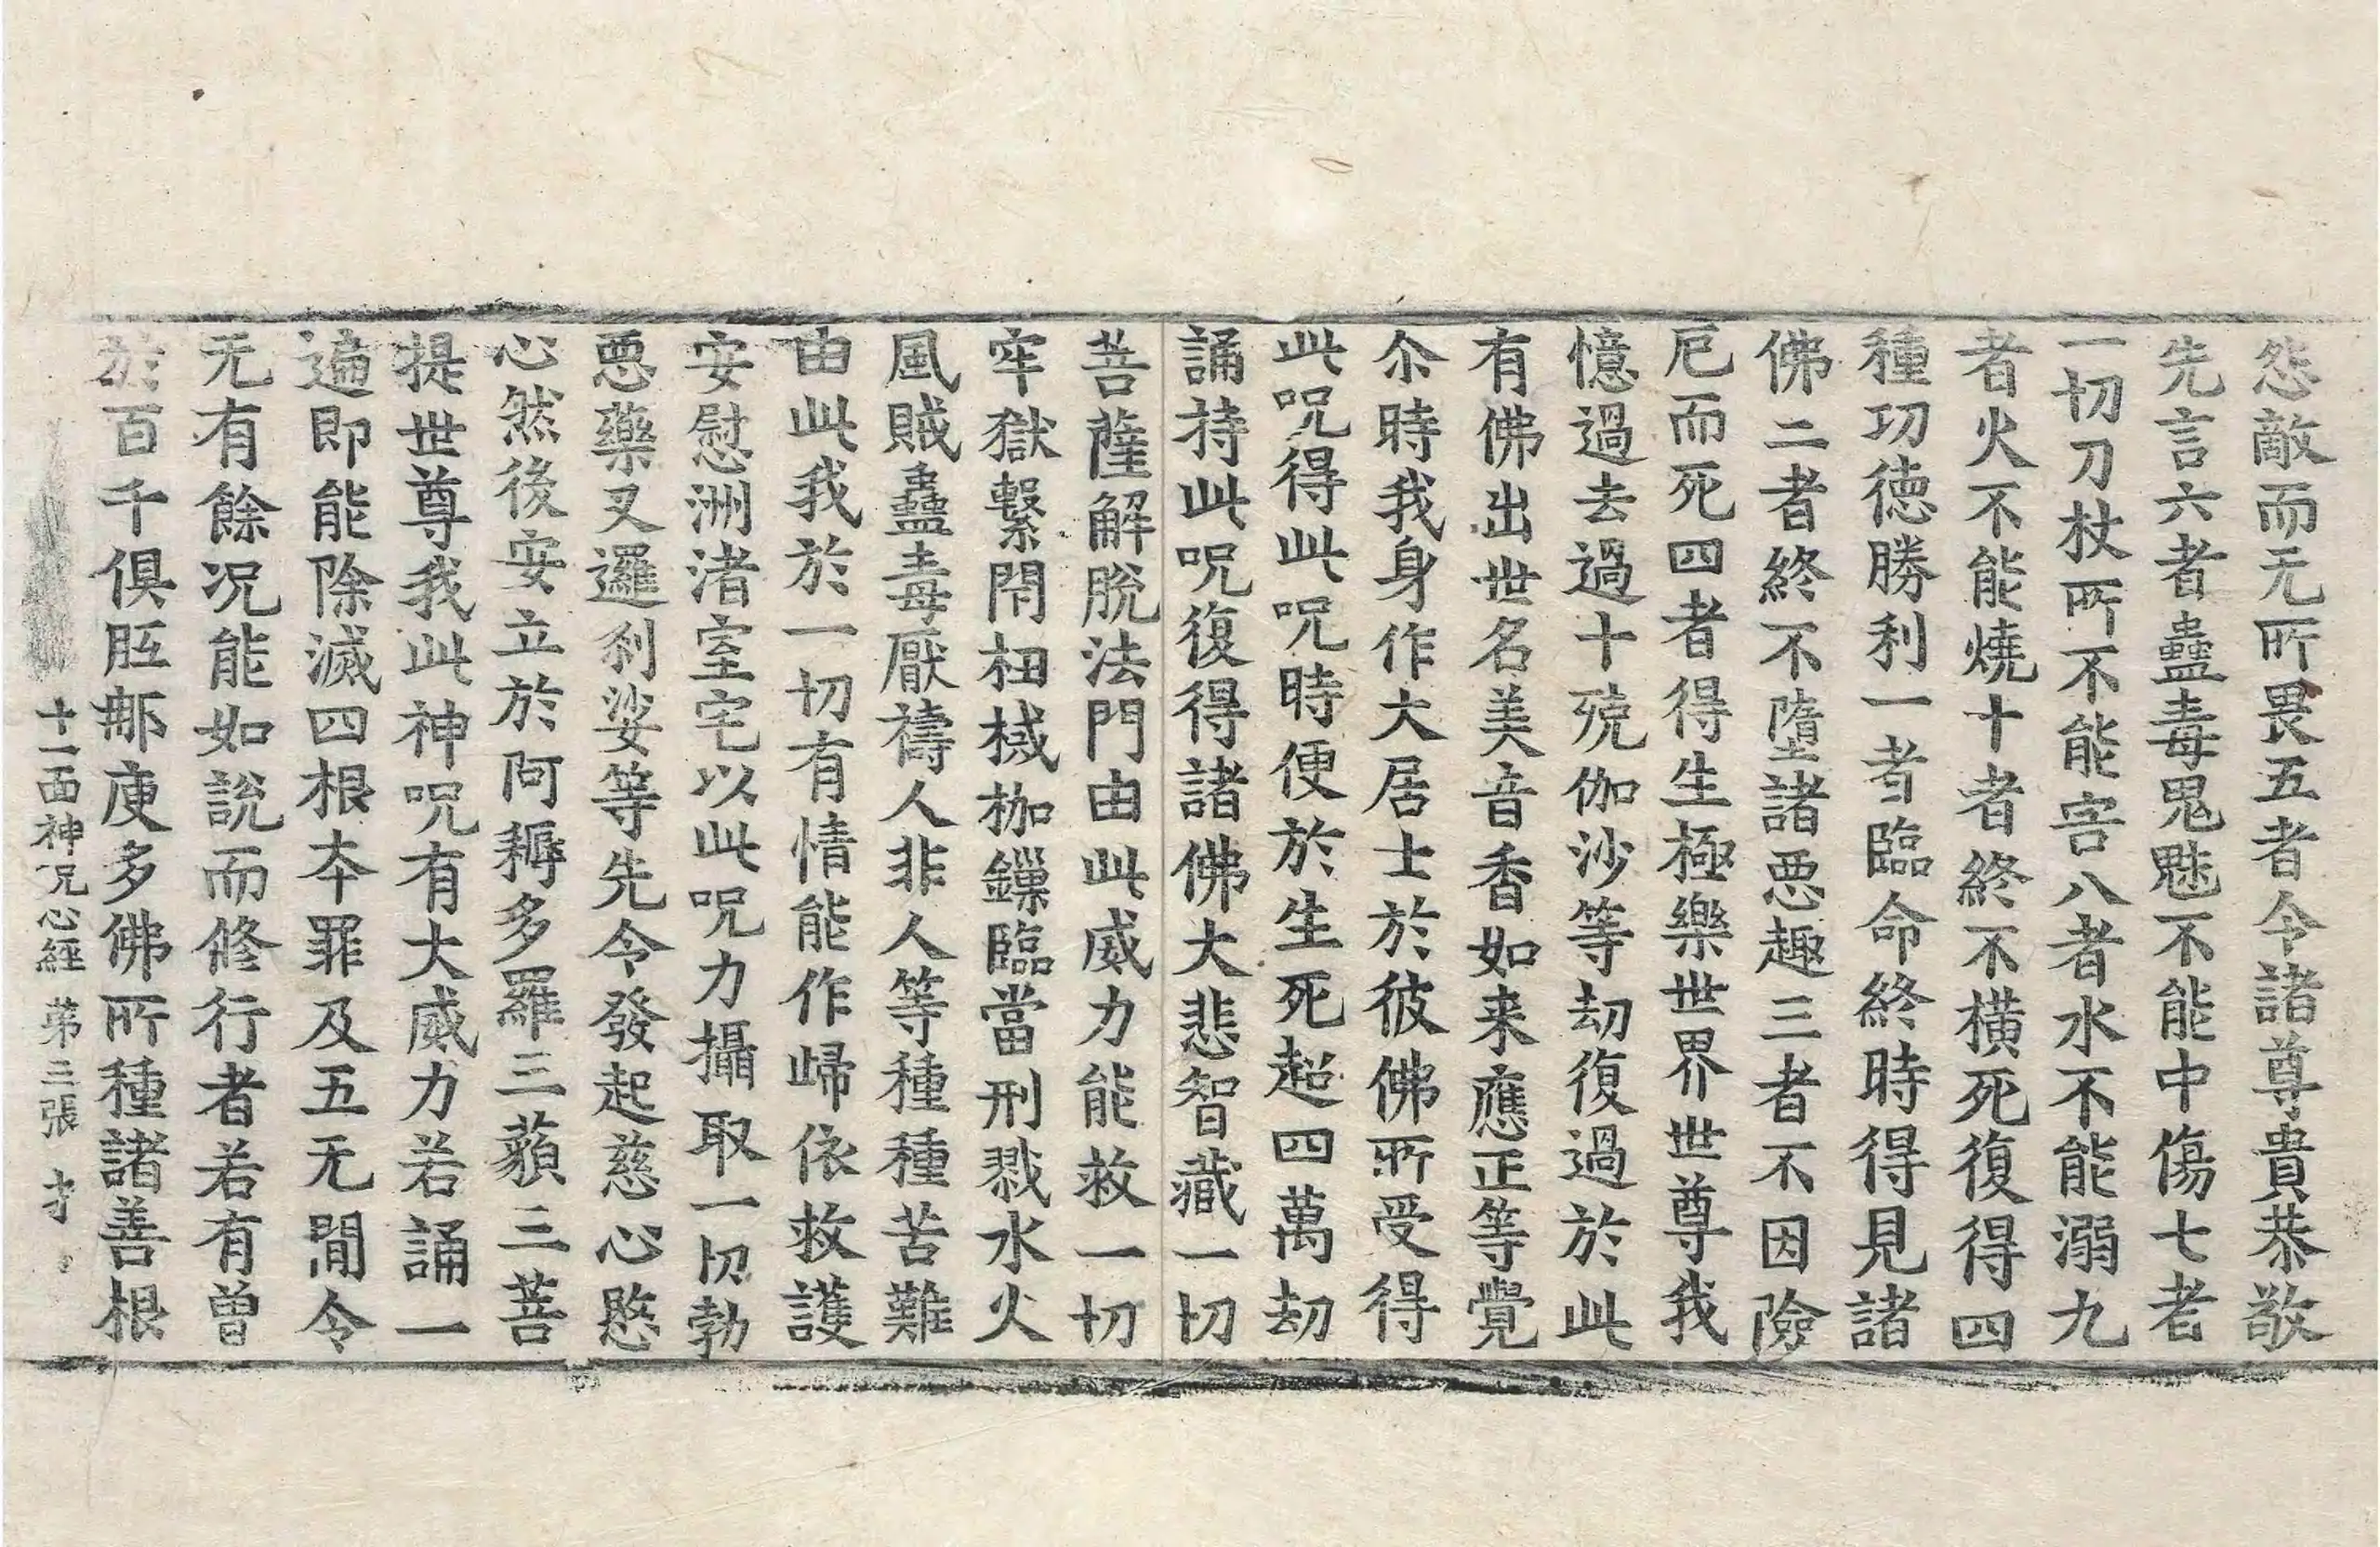 怨敵而无所畏五者令諸尊貴恭敬
先言六者蠱毒鬼魅不能中傷七者
一切刀杖所不能害八者水不能溺九
者火不能燒十者終不橫死復得四
種功德勝利一者臨命終時得見諸
佛二者終不墮諸惡趣三者不因險
厄而死四者得生極樂世界世尊我
憶過去過十殑伽沙等劫復過於此
有佛出世名美音香如来應正等覺
尒時我身作大居士於彼佛所受得
此呪得此呪時便於生死超四萬劫
誦持此呪復得諸佛大悲智藏一切
菩薩解脫法門由此威力能救一切
牢獄繫閇杻械枷鏁臨當刑戮水火
風賊蠱毒厭禱人非人等種種苦難
由此我於一切有情能作歸依救護
安慰洲渚室宅以此呪力攝取一切勃
惡藥叉邏刹娑等先令發起慈心愍
心然後安立於阿耨多羅三藐三菩
提世尊我此神呪有大威力若誦一
遍即能除滅四根本罪及五无閒令
无有餘况能如說而修行者若有曾
於百千俱胝那庾多佛所種諸善根
十一面神呪心經 第三張 才